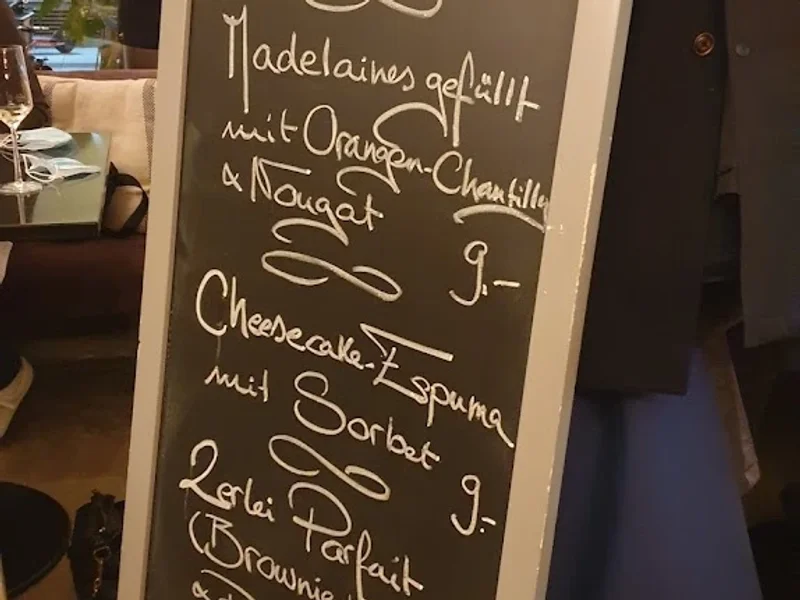 Madelaines gefüllt
mit Orangen-Chantilly
& Nougat
9.-
Cheesecake-Espuma
mit Sorbet 9.-
2erlei Parfait
(Brownie
&